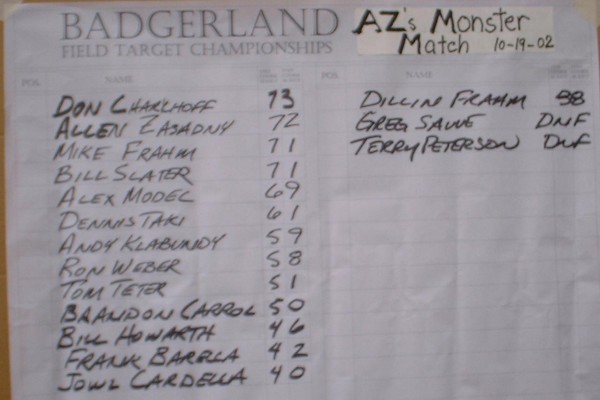 BADGERLAND
FIELD TARGET CHAMPIONSHIPS
AZ's Monster
Match 10-19-02
POS. NAME
DON CHARLHOFF 73
ALLEN ZASADNY 72
MIKE FRAHM 71
BILL SLATER 71
ALEX MODEL 69
DENNIS TAKI 61
ANDY KLABUNDY 59
RON WEBER 58
TOM TETER 51
BRANDON CARROL 50
BILL HOWARTH 46
FRANK BARELA 42
JOWL CARDELLA 40
POS. NAME
DILLIN FRAHM 38
GREG SAUVE DNF
TERRY PETERSON DNF